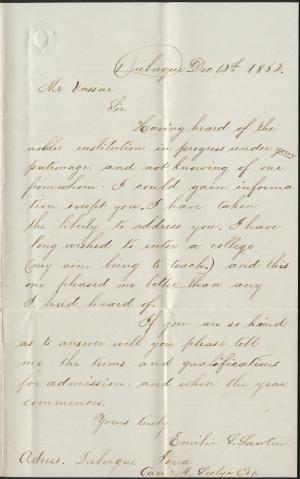 Dubuque Dec, 12th 1862.
Mr Vassar
Sir
Having heard of the
noble institution in progress under your
patronage. and not knowing of one
from whom I could gain informa
tion except you, I have taken
the liberty to address you. I have
long wished to enter a college
(my aim being to teach,) and this
one pleased me better than any
I had heard of.
If you are so kind
as to answer will you please tell
me the terms and qualifications
for admission. and when the year
commences.
Yours truly
Emilie S. Lawton
Adres. Dubuque Iowa
Care